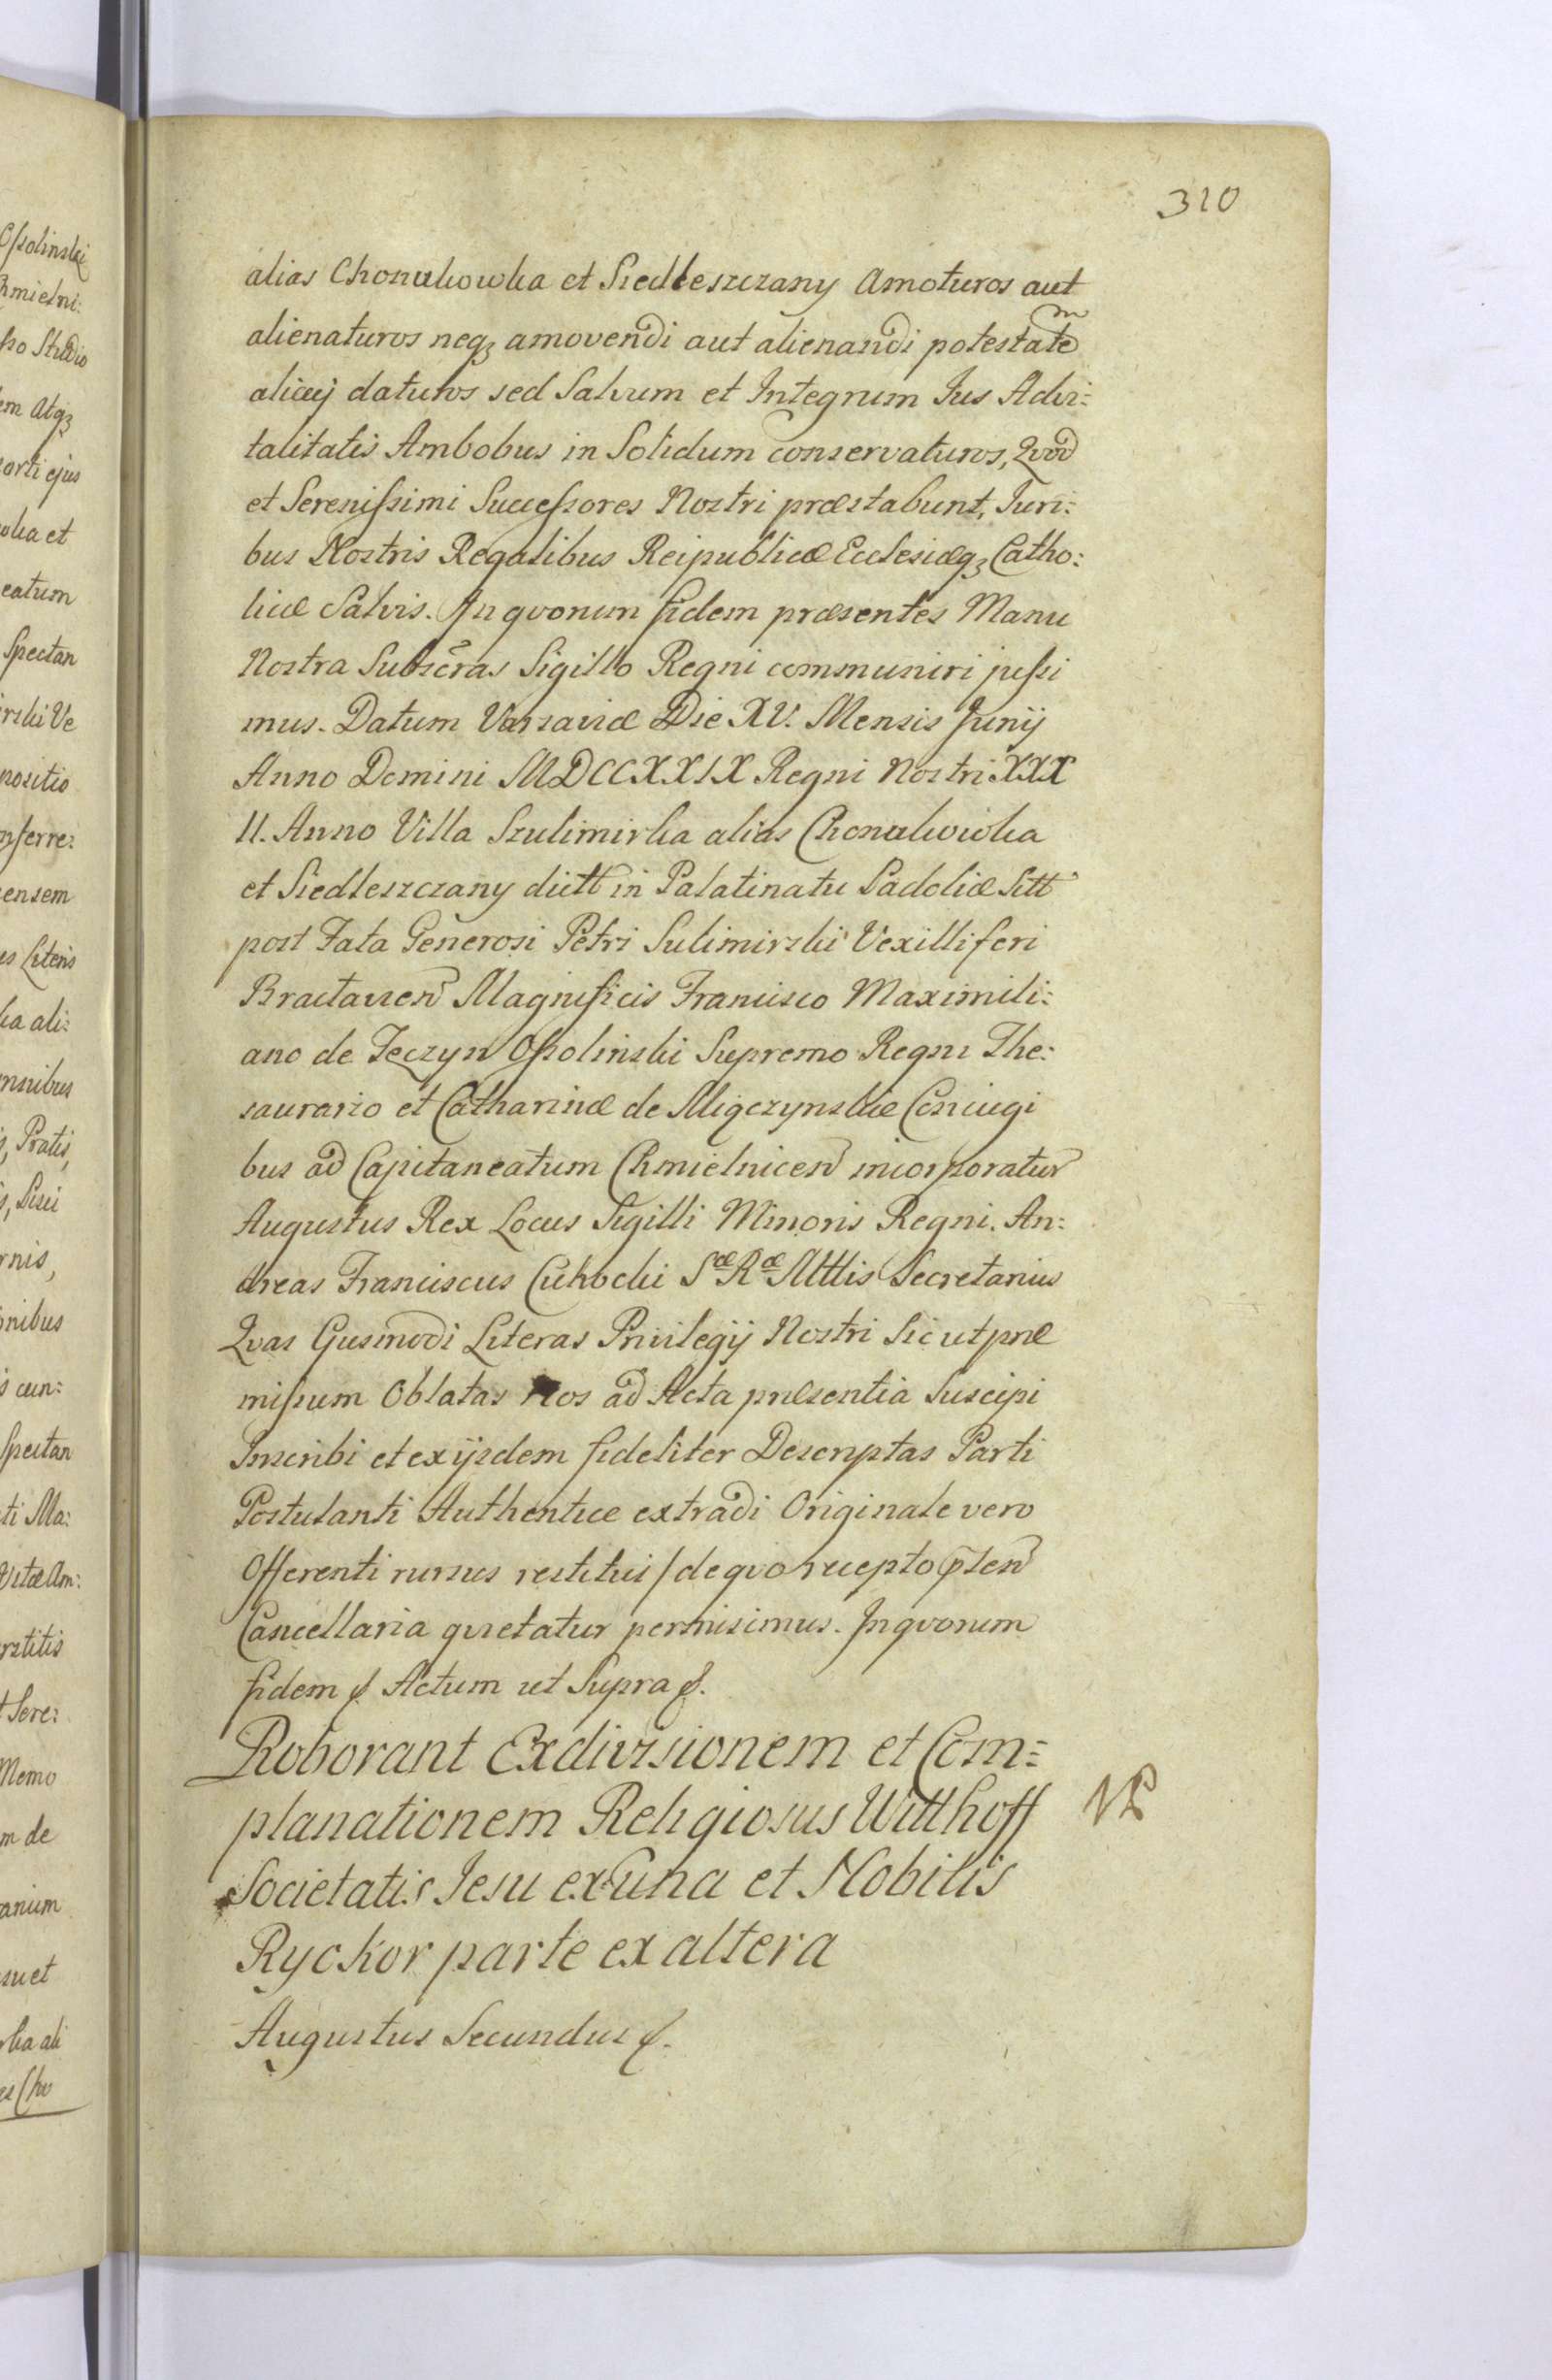 310
alias Chonukowka et Siedleszczany Amoturos aut
alienaturos neqꝫ amovendi aut alienandi potestatem
alicuj daturos sed Salvum et Integrum Jus Advi:
talitatis Ambobus in Solidum conservaturos, Qvod
et Serenissimi Successores Nostri præstabunt, Juri:
bus Nostris Regalibus Reipublicæ Ecclesiæqꝫ Catho:
licæ Salvis. In qvorum fidem præsentes Manu
Nostra Subscras Sigillo Regni communiri jussi
mus. Datum Varsaviæ Die XV. Mensis Junij
Anno Domini MDCCXXIX Regni Nostri XXX
II. Anno Villa Szulimirka alias Chonukowka
et Siedleszczany dictt in Palatinatu Padoliæ Sitt
post Fata Generosi Petri Sulimirski Vexilliferi
Bractavien Magnificis Francisco Maximili:
ano de Teczyn Ossolinski Supremo Regni The:
saurario et Catharinæ de Miączynskie Coniugi
bus ad Capitaneatum Chmielnicen incorporatur
Augustus Rex Locus Sigilli Minoris Regni. An:
dreas Franciscus Cichocki Sæ Ræ Mttis Secretarius
Qvas Eiusmodi Literas Privilegij Nostri Sic ut præ
missum Oblatas Nos ad Acta præsentia Suscipi
Inscribi et ex ijsdem fideliter Descriptas Parti
Postulanti Authentice extradi Originale vero
Offerenti rursus restitui / de qvo recepto pten
Cancellaria qvietatur permisimus. In qvorum
fidem &. Actum ut Supra &.
Roborant Exdivisionem et Com=
planationem Religiosus Witthoff
Societatis Jesu ex una et Nobilis
Ryckor parte ex altera
NB
Augustus Secundus &.